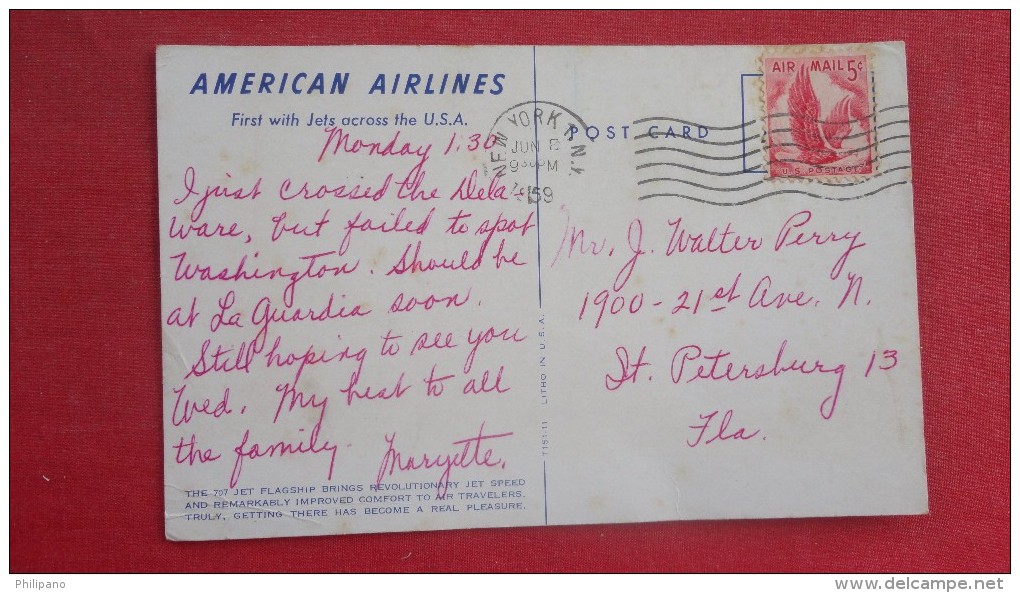 AMERICAN AIRLINES
First with Jets across the U.S.A.
Monday 1:30
I just crossed the Dela
ware, but failed to spot
Washington. Should be
at La Guardia soon.
Still hoping to see you
Wed. My best to all
the family.
Maryette.
THE 707 JET FLAGSHIP BRINGS REVOLUTIONARY JET SPEED
AND REMARKABLY IMPROVED COMFORT TO AIR TRAVELERS.
TRULY, GETTING THERE HAS BECOME A REAL PLEASURE.
T181-11 LITHO IN U.S.A.
NEW YORK N.Y.
JUN 8
PM
1959
POST CARD
AIR MAIL 5¢
U.S. POSTAGE
Mr. J. Walter Perry
1900 - 21st Ave. N.
St. Petersburg 13
Fla.
Philipano
www.delcampe.net